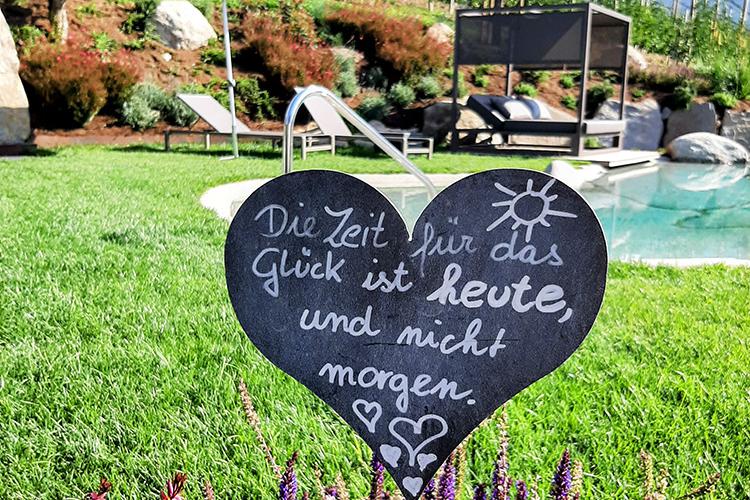 Die Zeit für das
Glück ist heute,
und nicht
morgen.